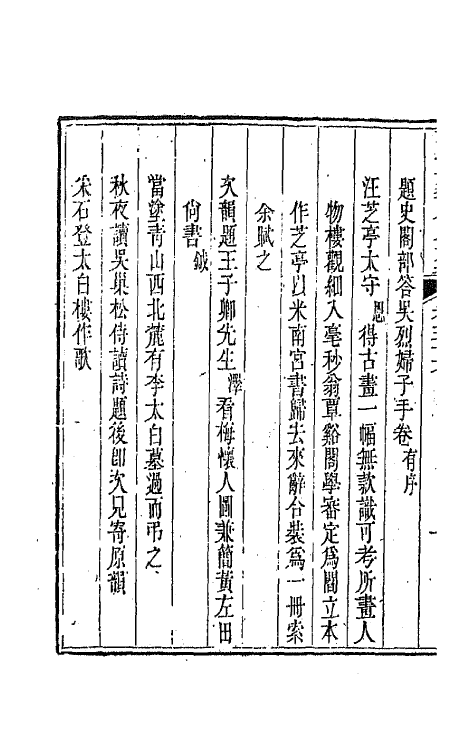 題史閣部答吳烈婦子手卷有序
汪芝亭太守恩得古畫一幅無款識可考所畫人
物樓觀細入毫秒翁覃谿閣學審定爲閻立本
作芝亭以米南宮書歸去來辭合裝爲一冊索
余賦之
次韻題王子卿先生澤看梅懷人圖兼簡黃左田
尙書鉞
當塗青山西北麓有李太白墓過而弔之
秋夜讀吳巢松侍讀詩題後卽次見寄原韻
采石登太白樓作歌